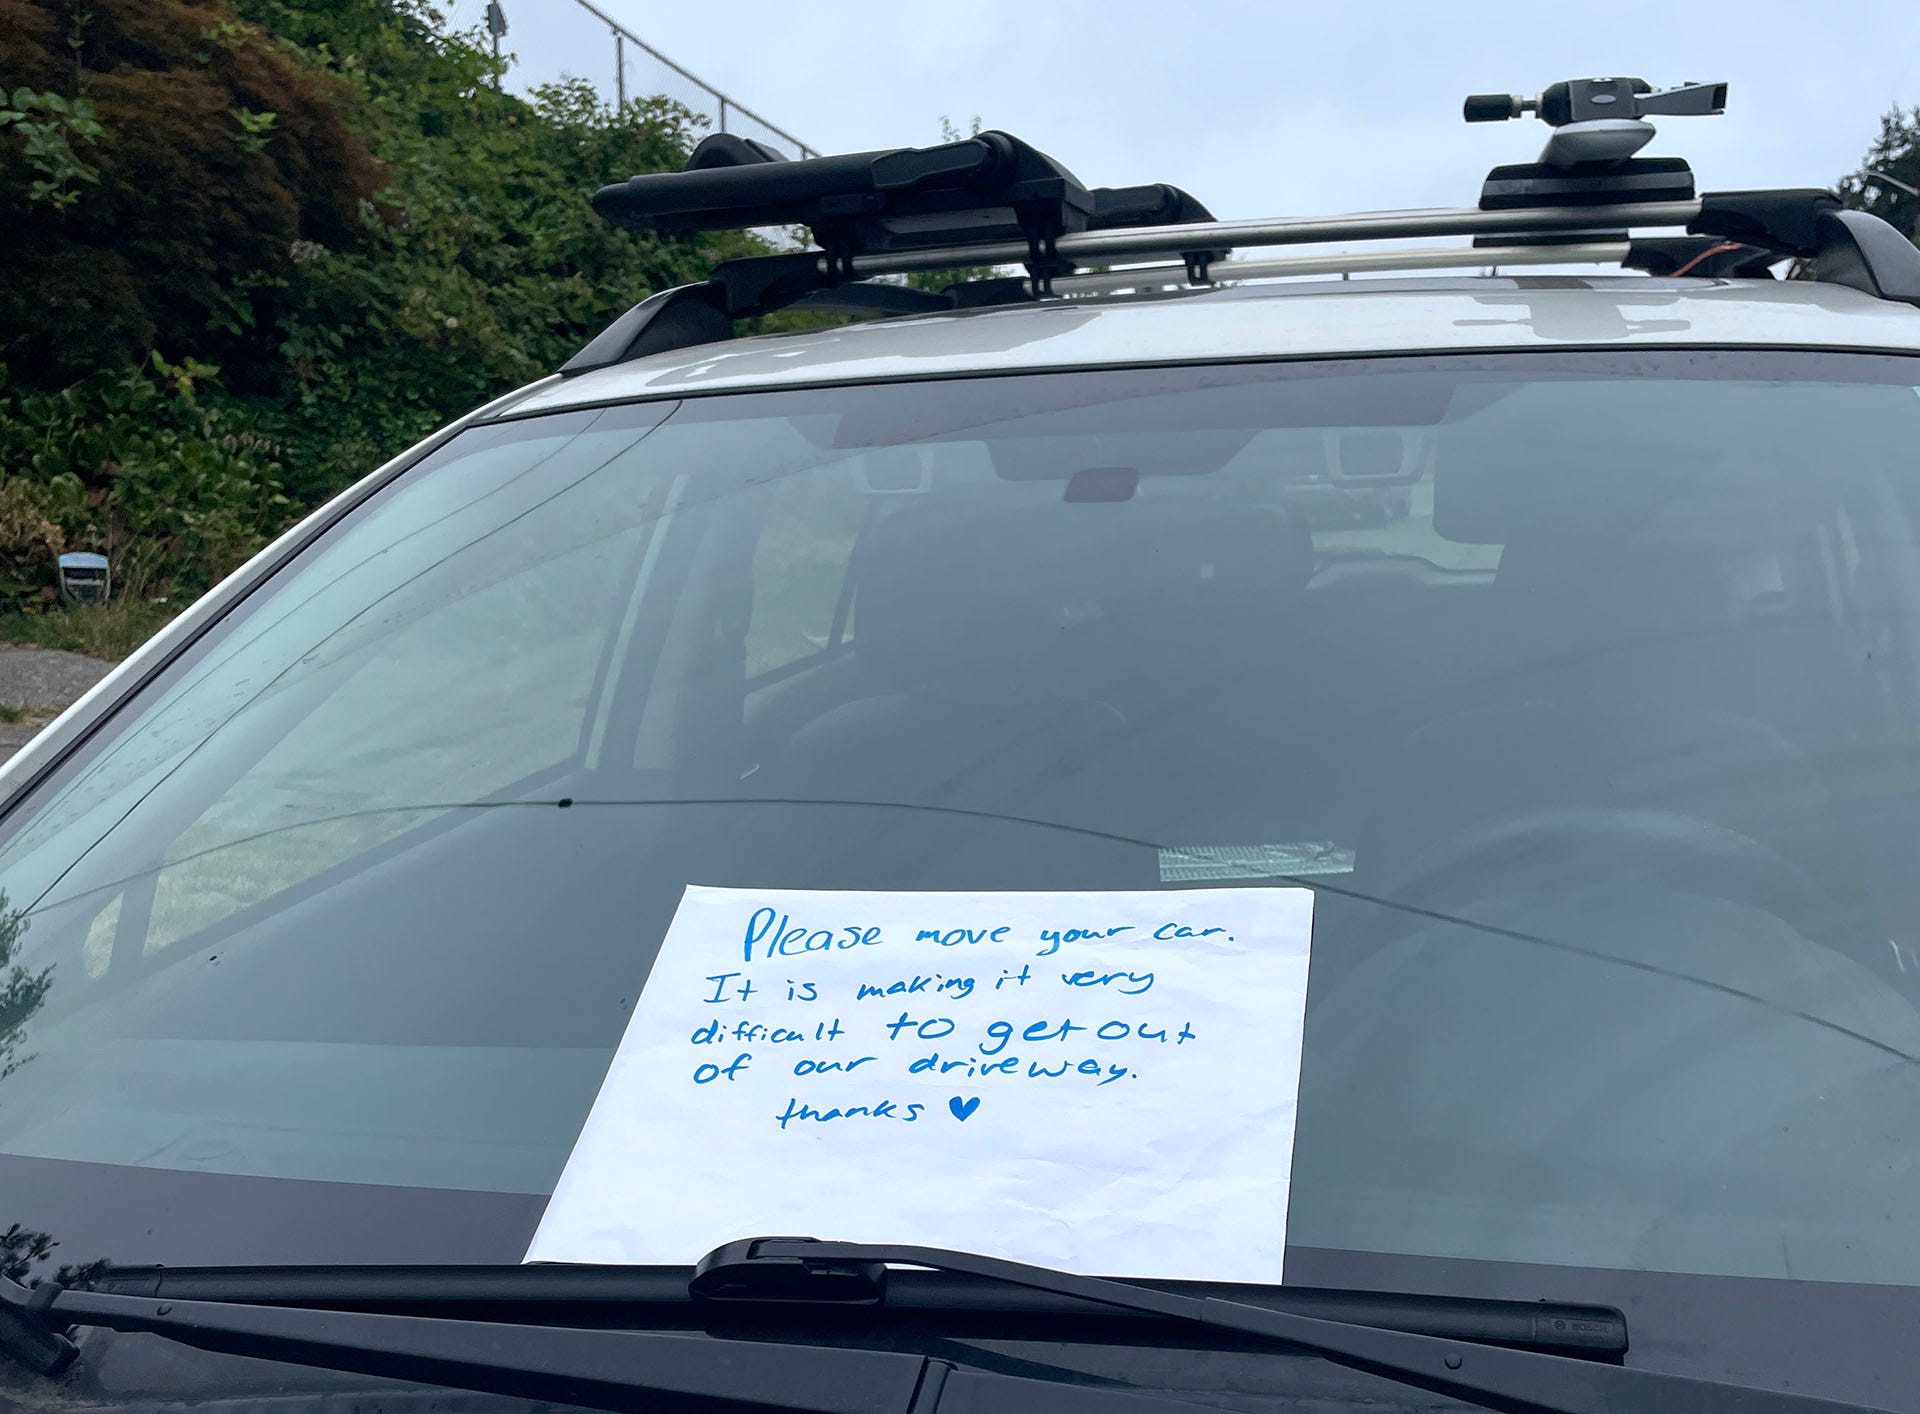 Please move your car.
It is making it very
difficult to get out
of our driveway.
thanks ♥
BOSCH